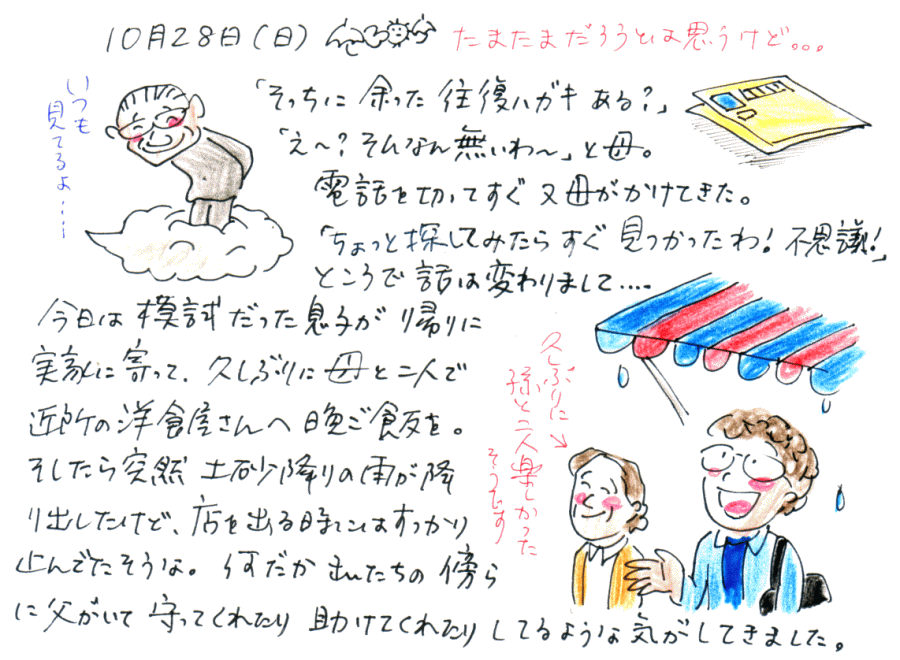 10月28日(日)
たまたまだろうとは思うけど。。。
いつも
見てるよ・・・
「そっちに 余った 往復ハガキ ある?」
「え〜?そんなん無いわ〜」と母。
電話を切ってすぐ 又母がかけてきた。
「ちょっと探してみたらすぐ 見つかったわ! 不思議!」
ところで 話は変わりまして....
今日は 模試だった息子が 帰りに
実家に寄って、久しぶりに 母と二人で
近所の洋食屋さんへ 晩ご飯を。
そしたら突然 土砂降りの雨が降
り出したけど、店を出る時にはすっかり
止んでたそうな。 何だか 私たちの 傍ら
に父がいて 守ってくれたり 助けてくれたり してるような気がしてきました。
久しぶりに
孫と二人楽しかった
そうです